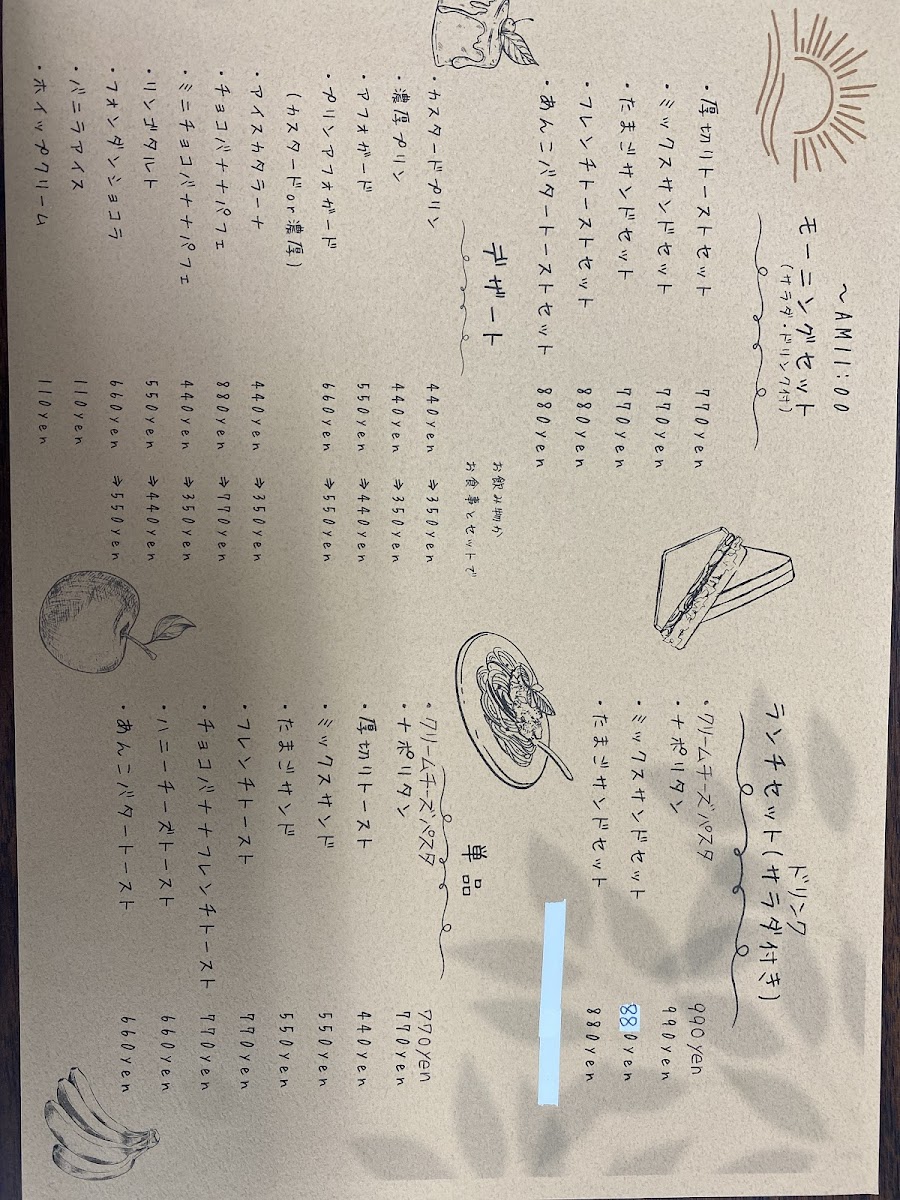 ～AM11:00
モーニングセット
(サラダ・ドリンク付)
・厚切りトーストセット 770yen
・ミックスサンドセット 770yen
・たまごサンドセット 770yen
・フレンチトーストセット 880yen
・あんこバタートーストセット 880yen
デザート
お飲み物か
お食事とセットで
・カスタードプリン 440yen ⇒350yen
・濃厚プリン 440yen ⇒350yen
・アフォガード 550yen ⇒440yen
・プリンアフォガード 660yen ⇒550yen
(カスタードor濃厚)
・アイスカタラーナ 440yen ⇒350yen
・チョコバナナパフェ 880yen ⇒770yen
・ミニチョコバナナパフェ 440yen ⇒350yen
・リンゴタルト 550yen ⇒440yen
・フォンダンショコラ 660yen ⇒550yen
・バニラアイス 110yen
・ホイップクリーム 110yen
ドリンク
ランチセット(サラダ付き)
・クリームチーズパスタ 990yen
・ナポリタン 990yen
・ミックスサンドセット 880yen
・たまごサンドセット 880yen
単品
・クリームチーズパスタ 770yen
・ナポリタン 770yen
・厚切りトースト 440yen
・ミックスサンド 550yen
・たまごサンド 550yen
・フレンチトースト 770yen
・チョコバナナフレンチトースト 770yen
・ハニーチーズトースト 660yen
・あんこバタートースト 660yen